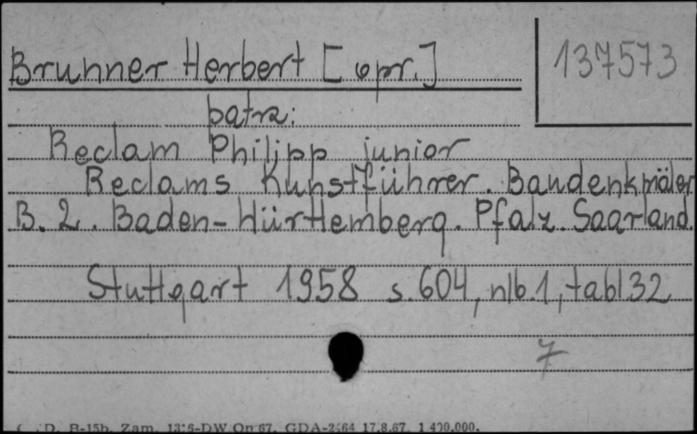 Brunner Herbert [opr.]
137573
patrz:
Reclam Philipp junior
Reclams Kunstführer. Baudenkmäler
B. 2. Baden-Württemberg. Pfalz. Saarland.
Stuttgart 1958 s. 604, nlb. 1, tabl 32
7
D. B-15b. Zam. GDA-2464 17.8.67. 1.400.000.